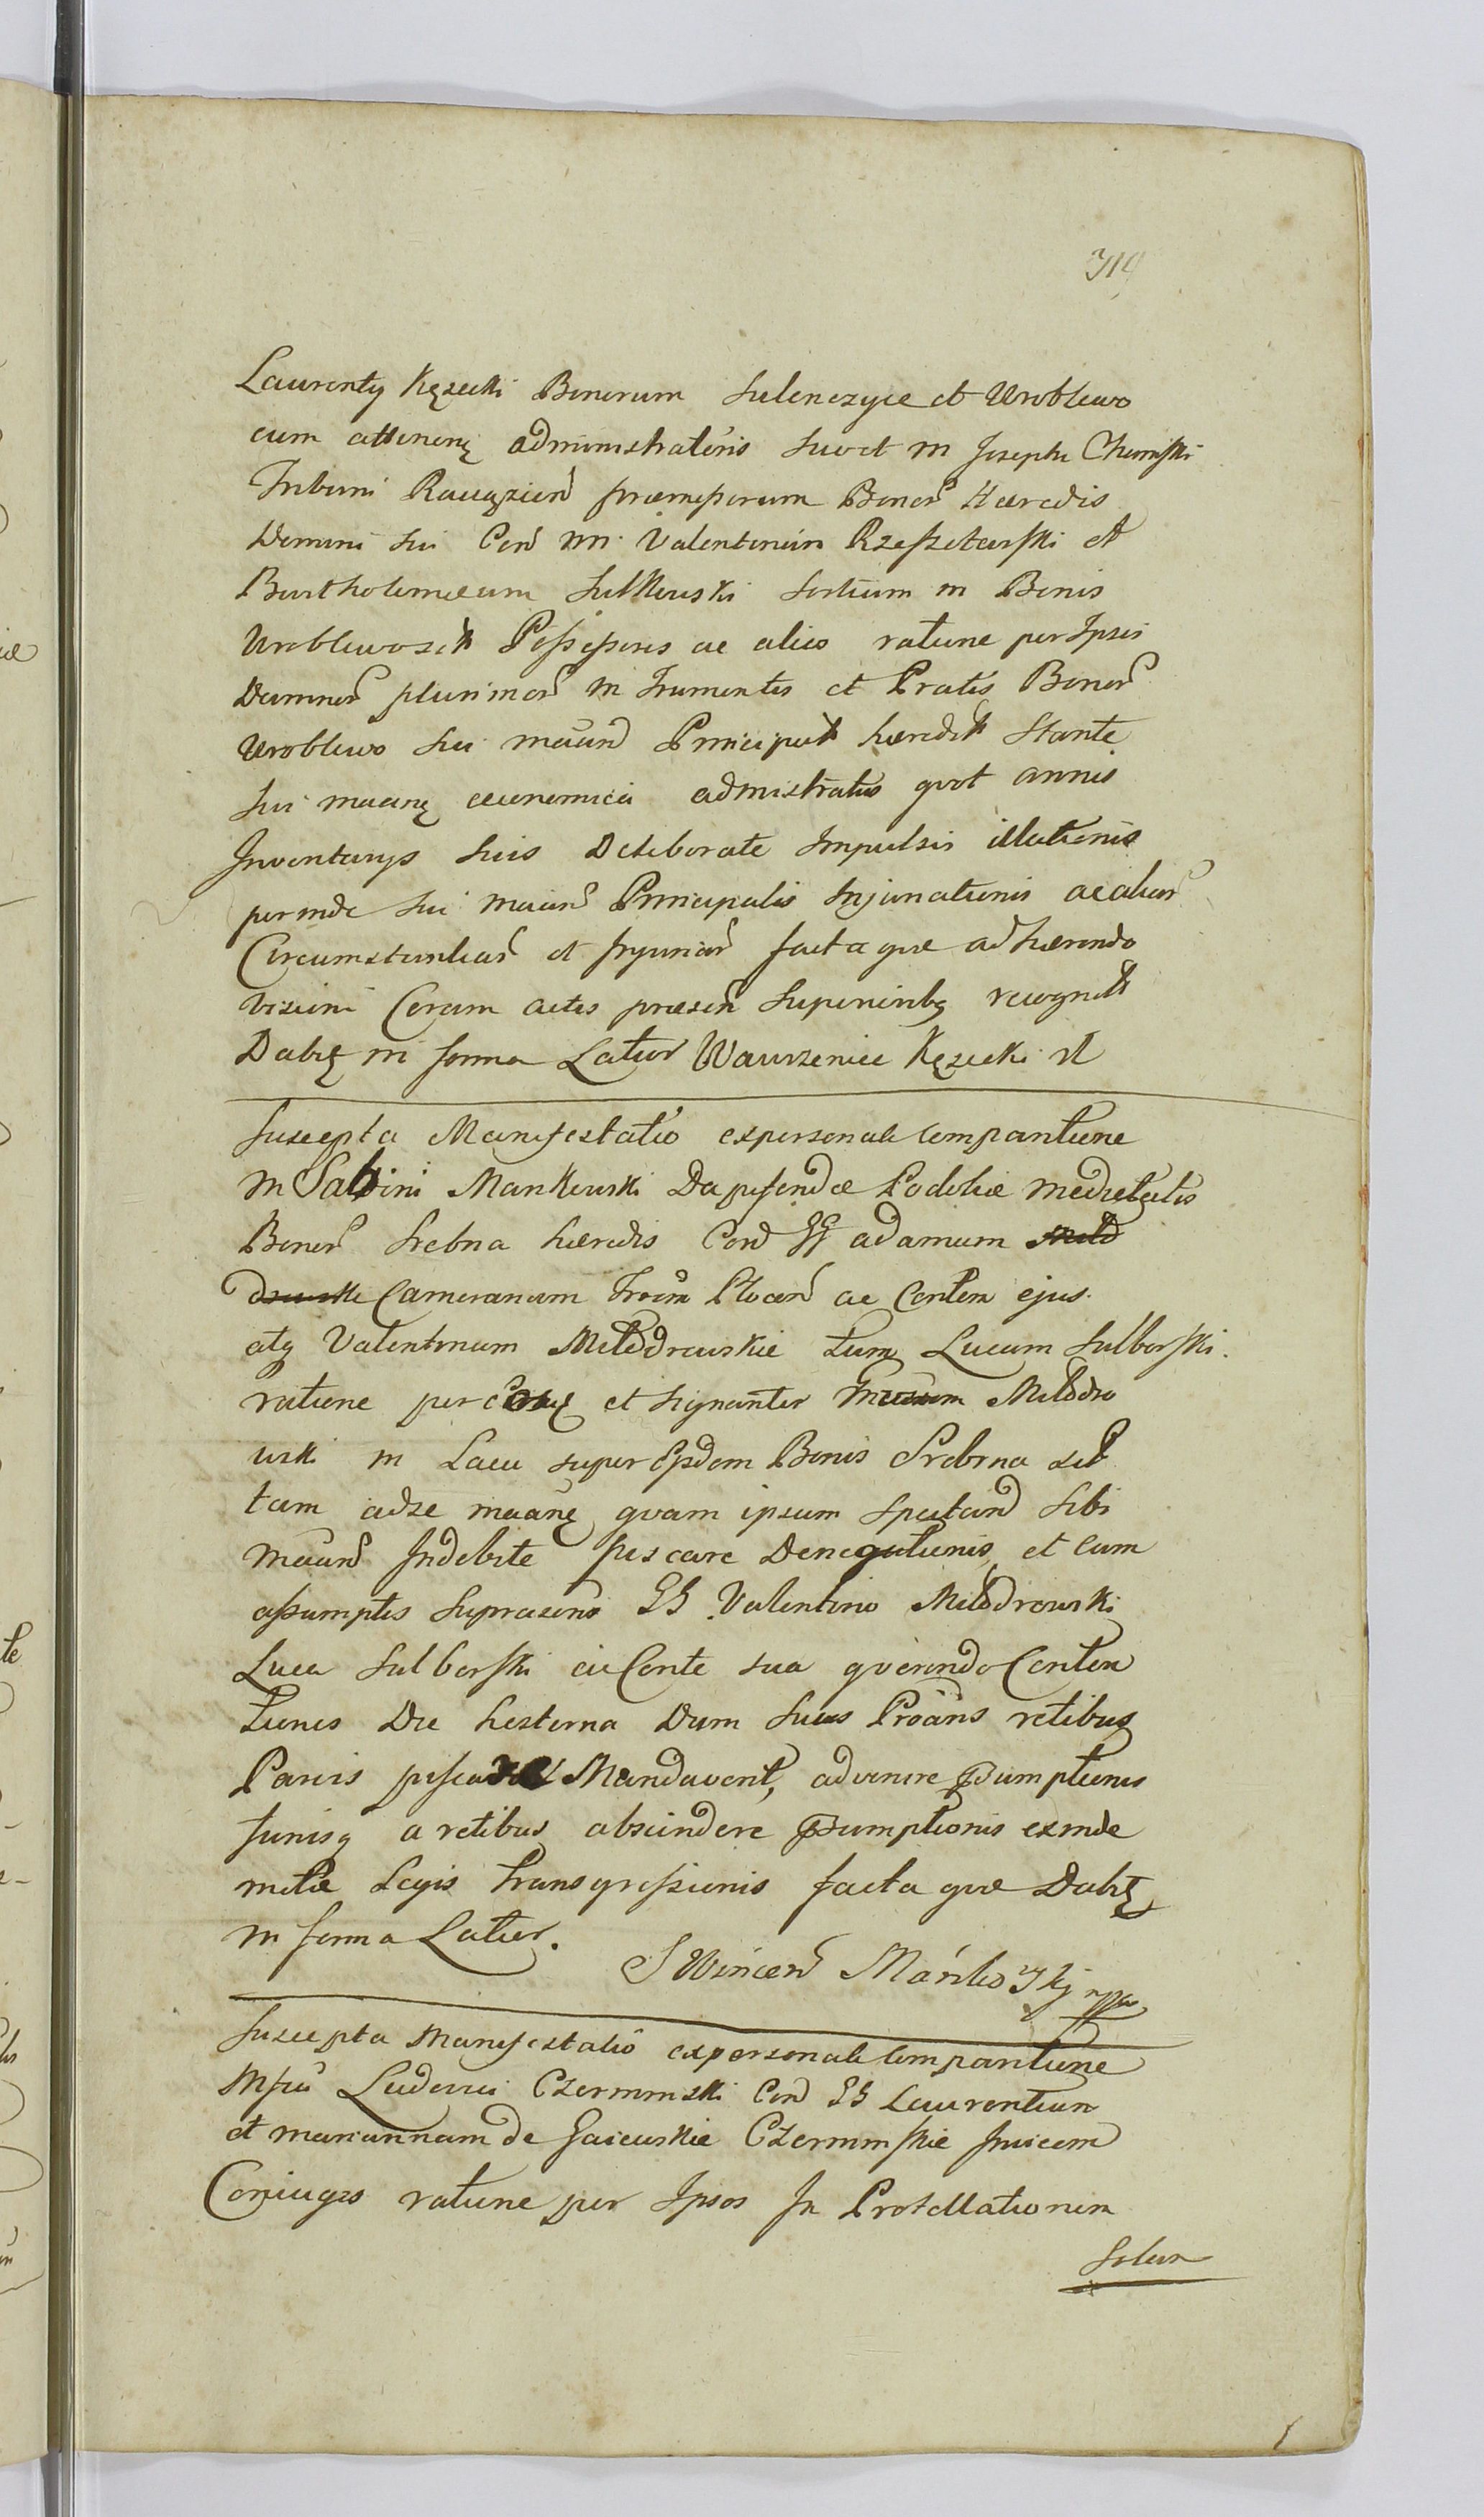 319
Laurentÿ Kęsecki Bonorum Sulenczyce et Wroblewo
cum attinenę administratoris suo et M Josephi Chamski
Tribuni Raciązien praemissorum Bonor Haeredis
Domini sui Con MM. Valentinum Rzeszotarski et
Bartholomaeum Sutkowski sortium in Bonis
Wroblewo Possessores ac alias ratione per Ipsos
Damnor plurimor in Frumentis et Pratis Bonor
Wroblewo sui maan Principal haeredit stante
sui maanę aeconomica admistratio quot annis
Inventarÿs suis Deliberate Impulsis illationis
perinde sui maan Principalis Injunationis ac aliar
Circumstantiar et Injuriar facta que adhaerendo
visioni Coram actis praesen Superinibę recognit
Dabię in forma Latior Wawrzeniec Kęsecki
Suscepta Manifestatio ex personali Comparitione
M Sabini Mankowski Dapiferidae Podoliae medietatis
Bonor Srebna haeredis Con GG adamum
Camerarium Trrum Plocen ac Contem ejus
atq Valentinum Młodrowskie tum Lucam Sulborski
ratione per eosę et signanter Młodro
wski in Lacu super Ejsdem Bonis Srebrna sit
tam ad se maanę quam ipsum Spectand sibi
maand Indebite piscare Denegationis et cum
assumptis suprasens GG Valentino Młodrowski
Luca Sulborski ac Conte sua querendo Conten
tiones Die hesterna Dum suus Proans retibus
Parvis Mandaverit, advenire Psumptionis
funisq a retibus abscindere Psumptionis exinde
metae Legis transgressionis facta que Dabię
in forma Latior.
S Wincen Mańkoski mpa
Suscepta Manifestatio ex personali Comparitione
Mfici Ludovici Czerminski Con GG Laurentium
et mariannam de Gaiewskie Czerminskie Invicem
Coniuges ratione per Ipsos In Protellationem
Solut